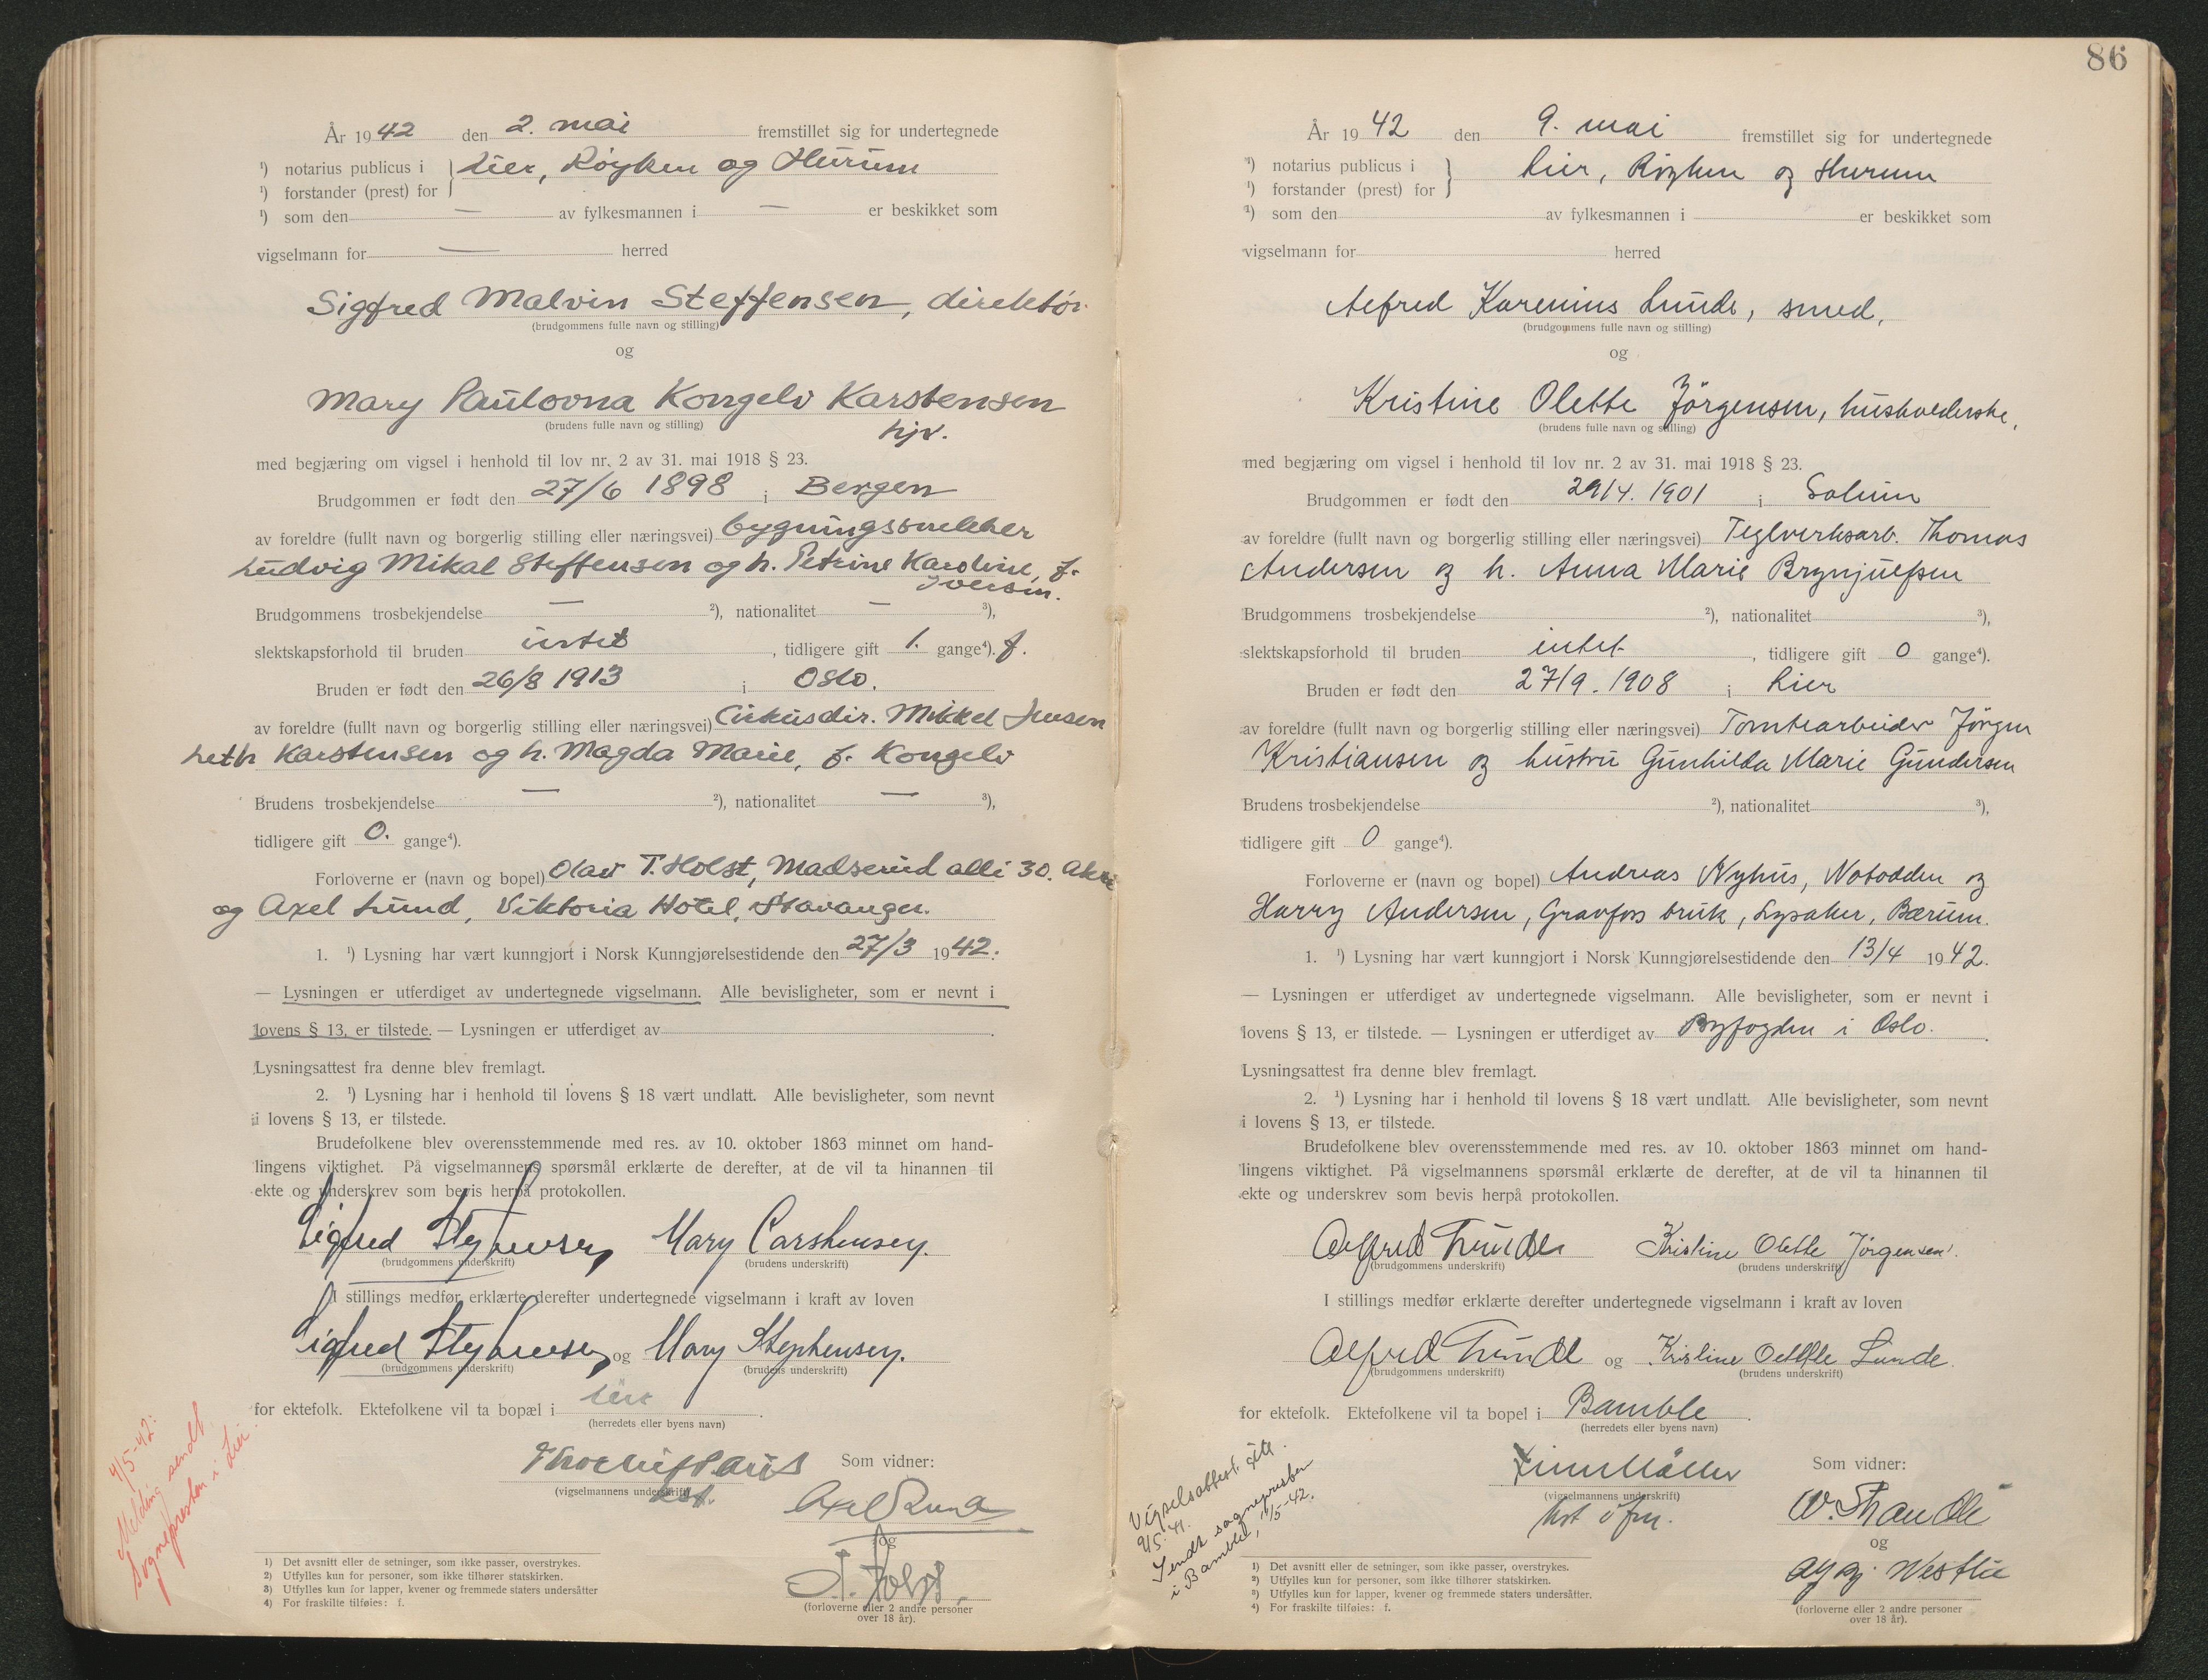 År 1942 den 2. mai fremstillet sig for undertegnede
¹) notarius publicus i } Lier, Røyken og Hurum
¹) forstander (prest) for
¹) som den — av fylkesmannen i — er beskikket som
vigselmann for — herred
Sigfred Malvin Steffensen, direktør
(brudgommens fulle navn og stilling)
og
Mary Paulovna Kongelv Karstensen
(brudens fulle navn og stilling) hjv.
med begjæring om vigsel i henhold til lov nr. 2 av 31. mai 1918 § 23.
Brudgommen er født den 27/6 1898 i Bergen
av foreldre (fullt navn og borgerlig stilling eller næringsvei) bygningssnekker
Ludvig Mikal Steffensen og h. Petrine Karoline, f.
Iversen.
Brudgommens trosbekjendelse — ²), nationalitet — ³),
slektskapsforhold til bruden intet, tidligere gift 1. gange⁴). f.
Bruden er født den 26/8 1913 i Oslo.
av foreldre (fullt navn og borgerlig stilling eller næringsvei) Cirkusdir. Mikkel Jensen
Leth Karstensen og h. Magda Marie, f. Kongelv
Brudens trosbekjendelse — ²), nationalitet — ³),
tidligere gift 0. gange⁴).
Forloverne er (navn og bopel) Olav T. Holst, Madserud alle 30. Aker
og Axel Lund, Viktoria Hotel, Stavanger.
1. ¹) Lysning har vært kunngjort i Norsk Kunngjørelsestidende den 27/3 1942.
— Lysningen er utferdiget av undertegnede vigselmann. Alle bevisligheter, som er nevnt i
lovens § 13, er tilstede. — Lysningen er utferdiget av .
Lysningsattest fra denne blev fremlagt.
2. ¹) Lysning har i henhold til lovens § 18 vært undlatt. Alle bevisligheter, som nevnt
i lovens § 13, er tilstede.
Brudefolkene blev overensstemmende med res. av 10. oktober 1863 minnet om hand-
lingens viktighet. På vigselmannens spørsmål erklærte de derefter, at de vil ta hinannen til
ekte og underskrev som bevis herpå protokollen.
Sigfred Stephensen Mary Carstensen.
(brudgommens underskrift) (brudens underskrift)
I stillings medfør erklærte derefter undertegnede vigselmann i kraft av loven
Sigfred Stephensen og Mary Stephensen.
(brudgommens underskrift) (brudens underskrift)
for ektefolk. Ektefolkene vil ta bopæl i Lier.
(herredets eller byens navn)
Som vidner:
(vigselmannens underskrift)
Axel Lund
og
T. Holst.
(forloverne eller 2 andre personer
over 18 år).
9/5-42:
Melding sendt
Sognepresten i Lier.
1) Det avsnitt eller de setninger, som ikke passer, overstrykes.
2) Utfylles kun for personer, som ikke tilhører statskirken.
3) Utfylles kun for lapper, kvener og fremmede staters undersåtter
4) For fraskilte tilføies: f.
86
År 1942 den 9. mai fremstillet sig for undertegnede
¹) notarius publicus i } Lier, Røyken og Hurum
¹) forstander (prest) for
¹) som den av fylkesmannen i er beskikket som
vigselmann for herred
Alfred Karenius Lunde, smed,
(brudgommens fulle navn og stilling)
og
Kristine Olette Jörgensen, husholderske,
(brudens fulle navn og stilling)
med begjæring om vigsel i henhold til lov nr. 2 av 31. mai 1918 § 23.
Brudgommen er født den 29/4. 1901 i Solum
av foreldre (fullt navn og borgerlig stilling eller næringsvei) Teglverksarb. Thomas
Andersen og h. Anna Marie Brynjulfsen
Brudgommens trosbekjendelse ²), nationalitet ³),
slektskapsforhold til bruden intet, tidligere gift 0 gange⁴).
Bruden er født den 27/9. 1908 i Lier
av foreldre (fullt navn og borgerlig stilling eller næringsvei) Tomtearbeider Jörgen
Kristiansen og hustru Gunhilda Marie Gundersen
Brudens trosbekjendelse ²), nationalitet ³),
tidligere gift 0 gange⁴).
Forloverne er (navn og bopel) Andreas Nyhus, Notodden og
Harry Andersen, Gravfoss bruk, Lysaker, Bærum.
1. ¹) Lysning har vært kunngjort i Norsk Kunngjørelsestidende den 13/4 1942.
— Lysningen er utferdiget av undertegnede vigselmann. Alle bevisligheter, som er nevnt i
lovens § 13, er tilstede. — Lysningen er utferdiget av Byfogden i Oslo.
Lysningsattest fra denne blev fremlagt.
2. ¹) Lysning har i henhold til lovens § 18 vært undlatt. Alle bevisligheter, som nevnt
i lovens § 13, er tilstede.
Brudefolkene blev overensstemmende med res. av 10. oktober 1863 minnet om hand-
lingens viktighet. På vigselmannens spørsmål erklærte de derefter, at de vil ta hinannen til
ekte og underskrev som bevis herpå protokollen.
Alfred Lunde Kristine Olette Jörgensen.
(brudgommens underskrift) (brudens underskrift)
I stillings medfør erklærte derefter undertegnede vigselmann i kraft av loven
Alfred Lunde og Kristine Olette Lunde.
(brudgommens underskrift) (brudens underskrift)
for ektefolk. Ektefolkene vil ta bopel i Bamble.
(herredets eller byens navn)
Som vidner:
(vigselmannens underskrift)
og
(forloverne eller 2 andre personer
over 18 år).
Vigselsattest
9/5.
Sendt sognepresten
i Bamble, 11/5-42.
1) Det avsnitt eller de setninger, som ikke passer, overstrykes.
2) Utfylles kun for personer, som ikke tilhører statskirken.
3) Utfylles kun for lapper, kvener og fremmede staters undersåtter.
4) For fraskilte tilføies: f.